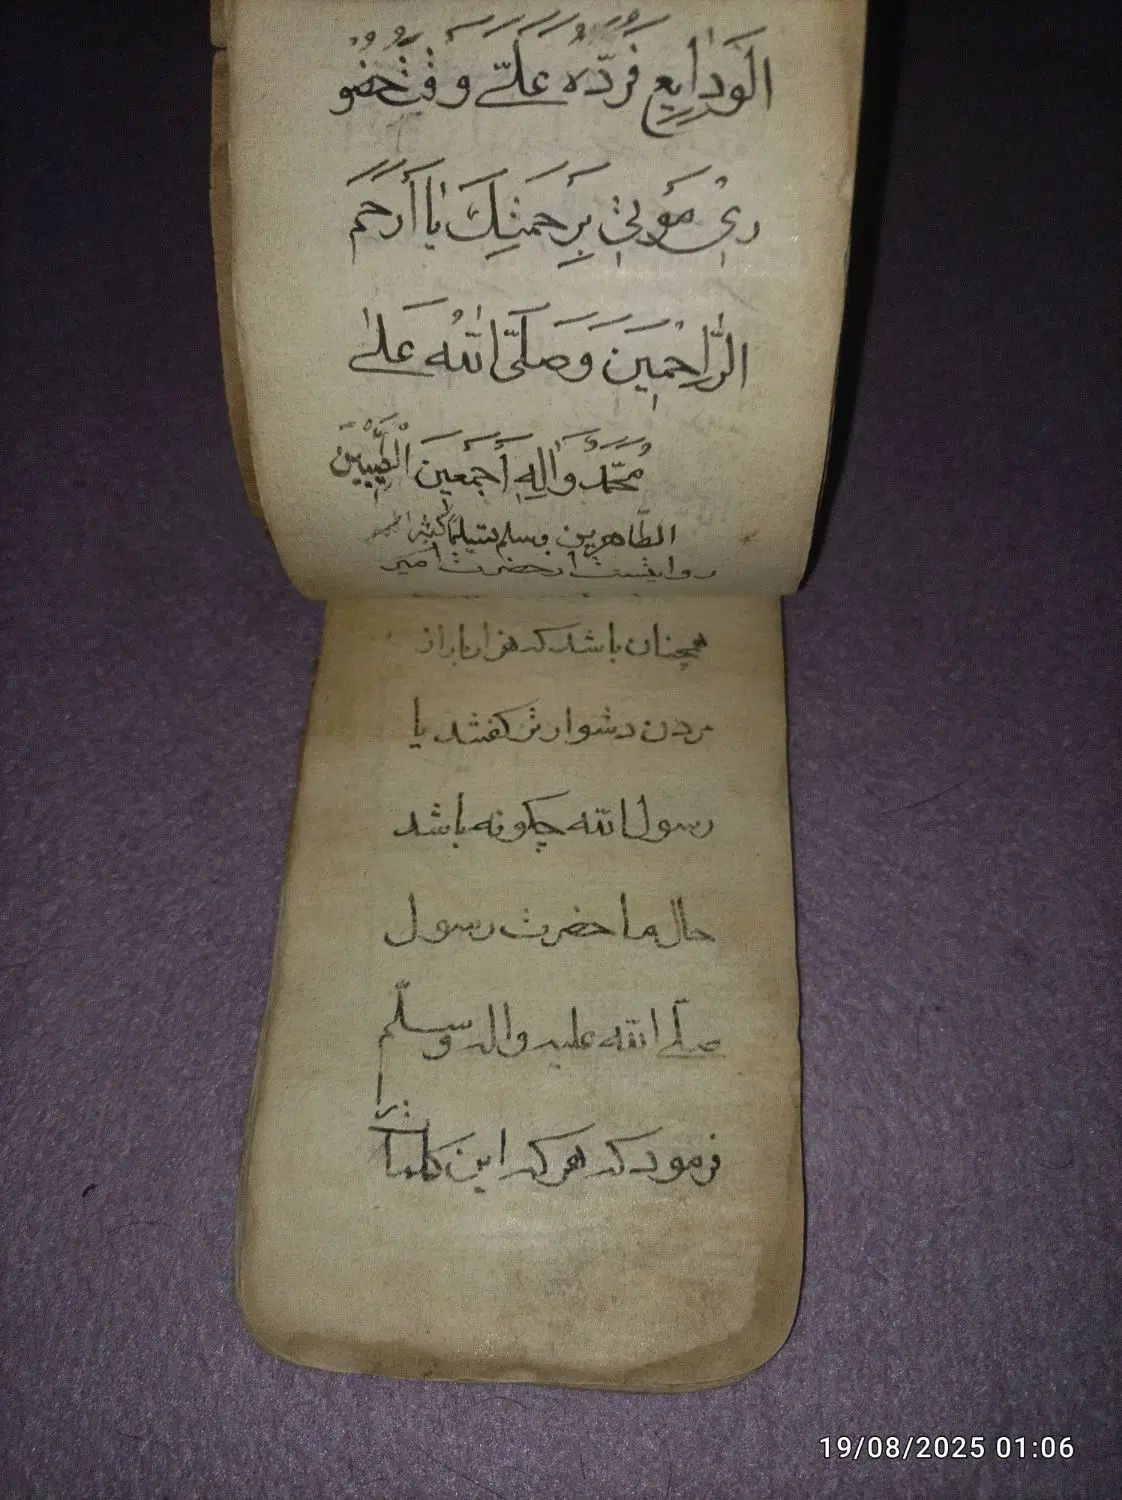 الْوَدٰایِعِ فَرُدَّهُ عَلَیَّ وَقْتَ حُضُو
رِیْ مَوْتِیْ بِرَحْمَتِكَ یٰا اَرْحَمَ
الرّٰاحِمِیْنَ وَصَلَّی اللّٰهُ عَلیٰ
مُحَمَّدٍ وَاٰلِهِ اَجْمَعِیْنَ الْطَّیِّبِیْنَ
الطّاهرین وسلم تسلیماً کثیرا
روایتست از حضرت امیر
همچنان باشد که هزار بار از
مردن دشوارتر گفتند یا
رسول الله چگونه باشد
حال ما حضرت رسول
صلّی الله علیه واله وسلّم
فرمود که هر که این کلمات
را
19/08/2025 01:06